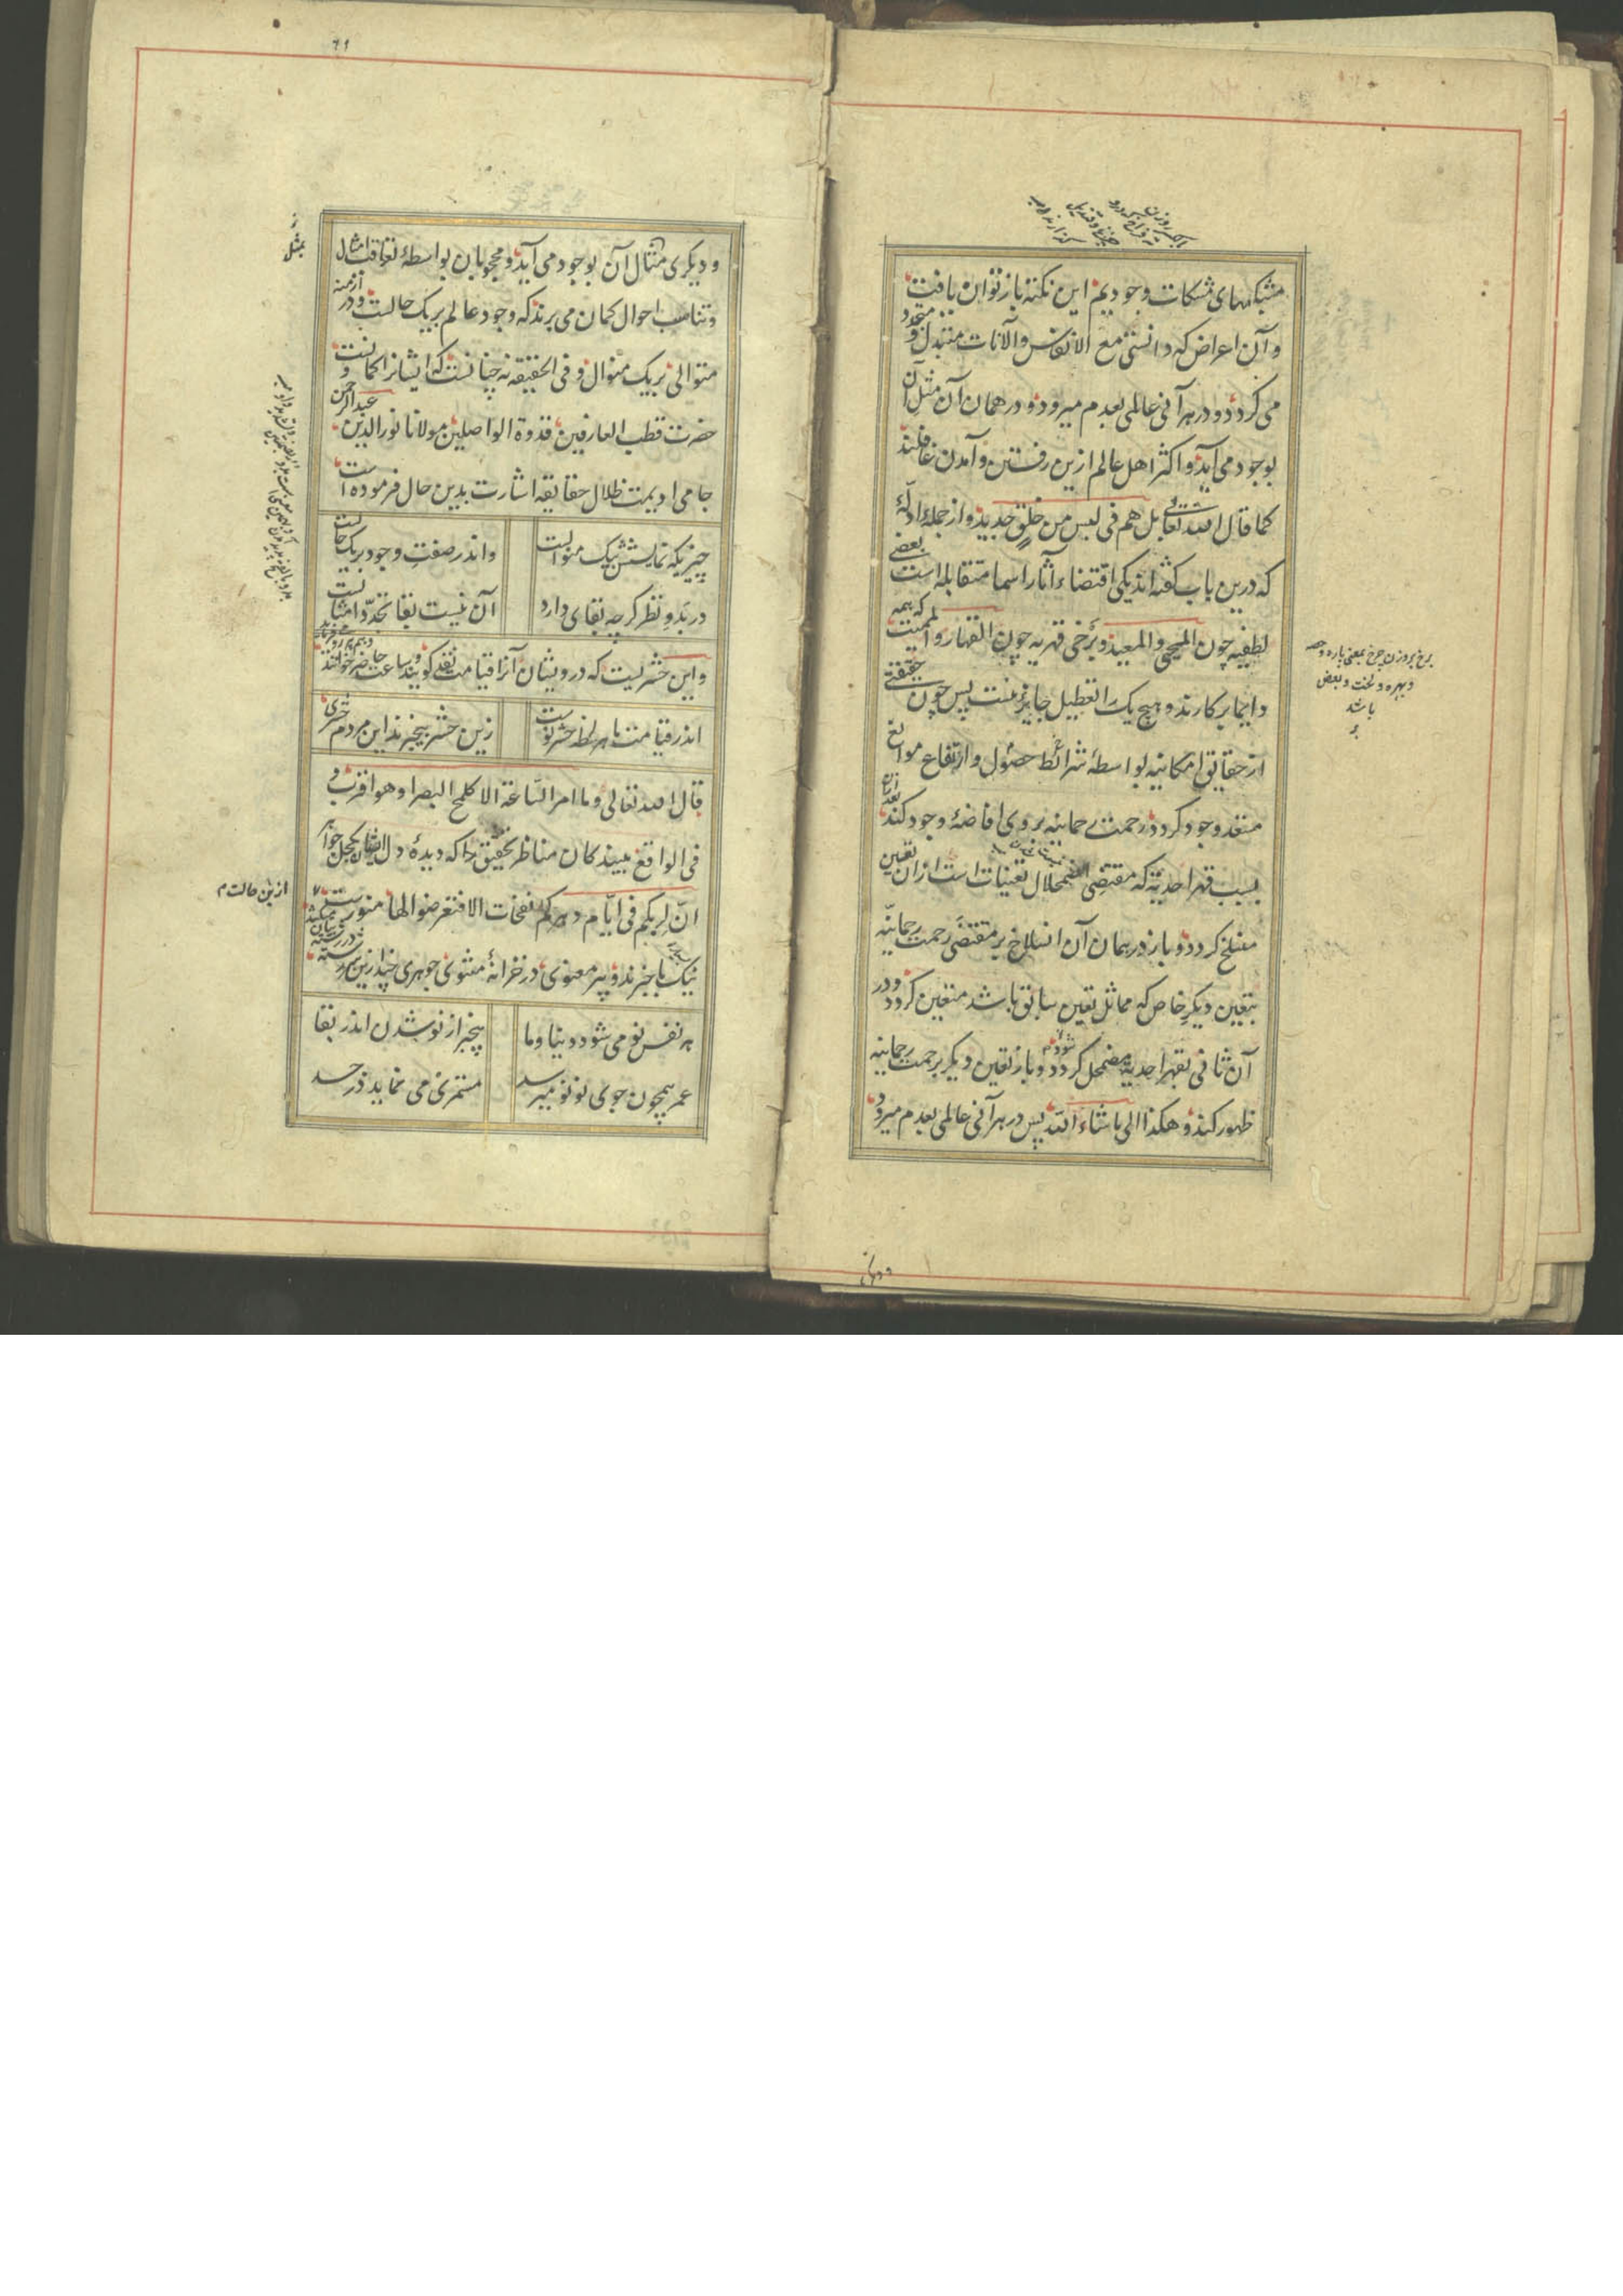 مشبکهای مشکات وجودیم این نکته باز توان یافت
و آن اعراض که دانستی مع الانفاس والآنات متبدل و متجدد
می کردد و در هر آنی عالمی بعدم میرود و در همان آن مثل آن
بوجود می آید و اکثر اهل عالم ازین رفتن و آمدن غافلند
کما قال الله تعالی بل هم فی لبس من خلق جدید و از جملهٔ ادلهٔ
که درین باب کفته اند یکی اقتضاء آثار اسما متقابله است بعضی
لطفیه چون المحیی والمعید و برخی قهریه چون القهار والممیت که همه
دایما برکارند و هیچ یک را تعطیل جایز نیست پس چون حقیقتی
از حقایق امکانیه بواسطهٔ شرائط حصول و ارتفاع موانع
مستعد وجود کردد رحمت رحمانیه بروی افاضهٔ وجود کند بعد ازان
بسبب قهر احدیة که مقتضی اضمحلال تعینات است ازان تعین
منسلخ کردد و باز در همان آن انسلاخ بر مقتضی رحمت رحمانیه
بتعین دیکر خاص که مماثل تعین سابق باشد متعین کردد و در
آن ثانی بقهر احدیة مضمحل کردد و باز تعین دیکر برحمت رحمانیه
ظهور کند و هکذا الی ماشاء الله پس در هر آنی عالمی بعدم میرود
برخ بر وزن چرخ بمعنی پاره و حصه
و بهره و لخت و بعض
باشد
و دیکری مثال آن بوجود می آید و محجوبان بواسطهٔ تعاقب امثال
و تناسب احوال کمان می برند که وجود عالم بر یک حالست و در ازمنه
متوالی بر یک منوال و فی الحقیقه نه چنانست که ایشانرا کمانست و
حضرت قطب العارفین قدوة الواصلین مولانا نورالدین عبد الرحمن
جامی ادیمت ظلال حقایقه اشارت بدین حال فرموده است
چیزیکه نمایشش بیک منوالست
و اندر صفت وجود بر یک حالست
در بدو نظر کرچه بقای دارد
آن نیست بقا تجدد امثالست
و این حشریست که درویشان آنرا قیامت نقد کویند و ساعت حاضر خوانند
اندر قیامت ما هر لحظه حشر نوست
زین حشر بیخبرند این مردم حشری
قال الله تعالی وما امر الساعة الا کلمح البصر او هو اقرب و
فی الواقع بینندکان مناظر تحقیق را که دیدهٔ دل ایشان بکحل جواهر
ان لربکم فی ایام دهرکم نفحات الا فتعرضوا لها منورست
ازین حالت
نیک باخبرند و پیر معنوی در خزانهٔ مثنوی جوهری چند
هر نفس نو می شود دنیا و ما
بیخبر از نو شدن اندر بقا
عمر همچون جوی نو نو میرسد
مستمری می نماید در جسد